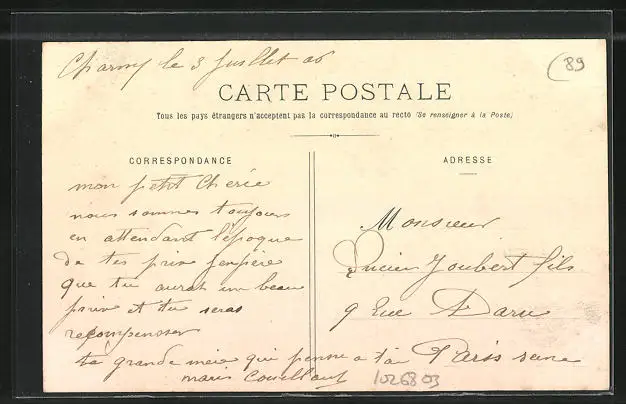 Charny le 3 Juillet 06
89
CARTE POSTALE
Tous les pays étrangers n'acceptent pas la correspondance au recto (Se renseigner à la Poste)
CORRESPONDANCE
mon petit Cherie
nous sommes toujours
en attendant l'epoque
de tes prix j'espère
que tu aurat un beau
prix et tu seras
recompenser
ta grande mere qui pense a toi
maris
ADRESSE
Monsieur
Lucien Joubert fils
9 Rue Daru
Paris seine
1026803